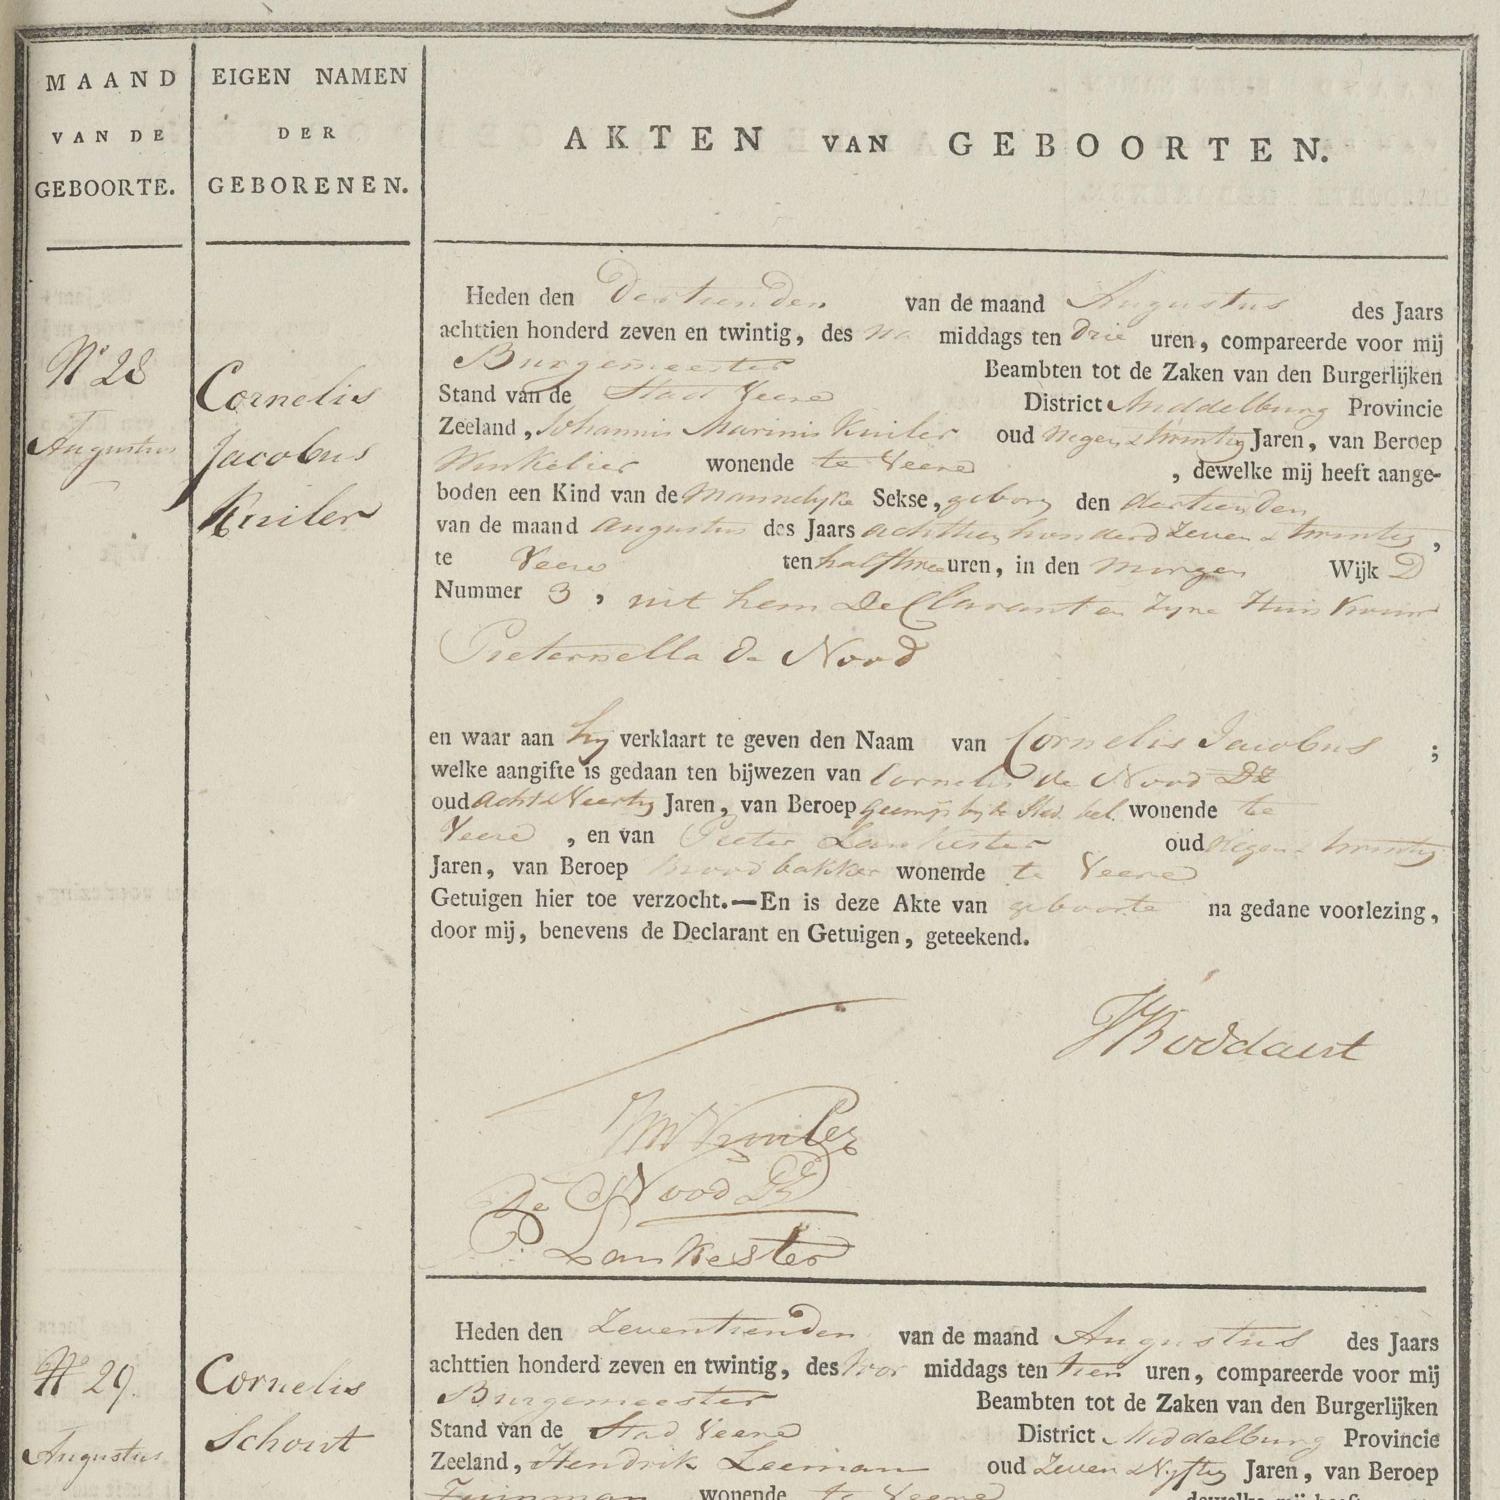 MAAND
VAN DE
GEBOORTE.
EIGEN NAMEN
DER
GEBORENEN.
AKTEN VAN GEBOORTEN.
N° 28
Augustus
Cornelis
Jacobus
Kuiler
Heden den Dertienden van de maand Augustus des Jaars
achttien honderd zeven en twintig, des na middags ten drie uren, compareerde voor mij
Burgemeester Beambten tot de Zaken van den Burgerlijken
Stand van de Stad Veere District Middelburg Provincie
Zeeland, Johannis Marinis Kuiler oud negen & twintig Jaren, van Beroep
Winkelier wonende te Veere, dewelke mij heeft aange-
boden een Kind van de mannelyke Sekse, geboren den dertienden
van de maand augustus des Jaars achttien honderd zeven & twintig,
te Veere ten half twee uren, in den morgen Wijk D
Nummer 3, uit hem Declarant en Zyne Huisvrouw
Pieternella de Nood
en waar aan hy verklaart te geven den Naam van Cornelis Jacobus;
welke aangifte is gedaan ten bijwezen van Cornelis de Nood DZ
oud acht & Veertig Jaren, van Beroep wonende te
Veere, en van Pieter Lankester oud negen & twintig
Jaren, van Beroep broodbakker wonende te Veere
Getuigen hier toe verzocht.—En is deze Akte van geboorte na gedane voorlezing,
door mij, benevens de Declarant en Getuigen, geteekend.
Boddaert
JM Kuiler
C De Nood DZ
P. Lankester
N° 29.
Augustus
Cornelis
Schout
Heden den Zeventienden van de maand Augustus des Jaars
achttien honderd zeven en twintig, des Voor middags ten tien uren, compareerde voor mij
Burgemeester Beambten tot de Zaken van den Burgerlijken
Stand van de Stad Veere District Middelburg Provincie
Zeeland, Hendrik Leeman oud Zeven & Vyftig Jaren, van Beroep
Tuinman wonende te Veere dewelke mij heeft